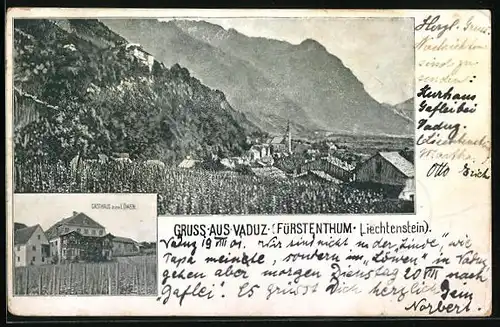 Herzl. Gruss
Nachrichten
sind zu
senden:
Kurhaus
Gaflei bei
Vaduz.
Liechtenstein
Otto Erich
GASTHAUS ZUM LÖWEN.
GRUSS-AUS-VADUZ-(FÜRSTENTHUM-Liechtenstein).
Vaduz 19 VIII 01. Wir sind nicht in der "Linde", wie
Papa meinte, sondern im "Löwen" in Vaduz
gehen aber morgen Dienstag 20 VIII nach
Gaflei! Es grüsst Dich herzlich Dein
Norbert.